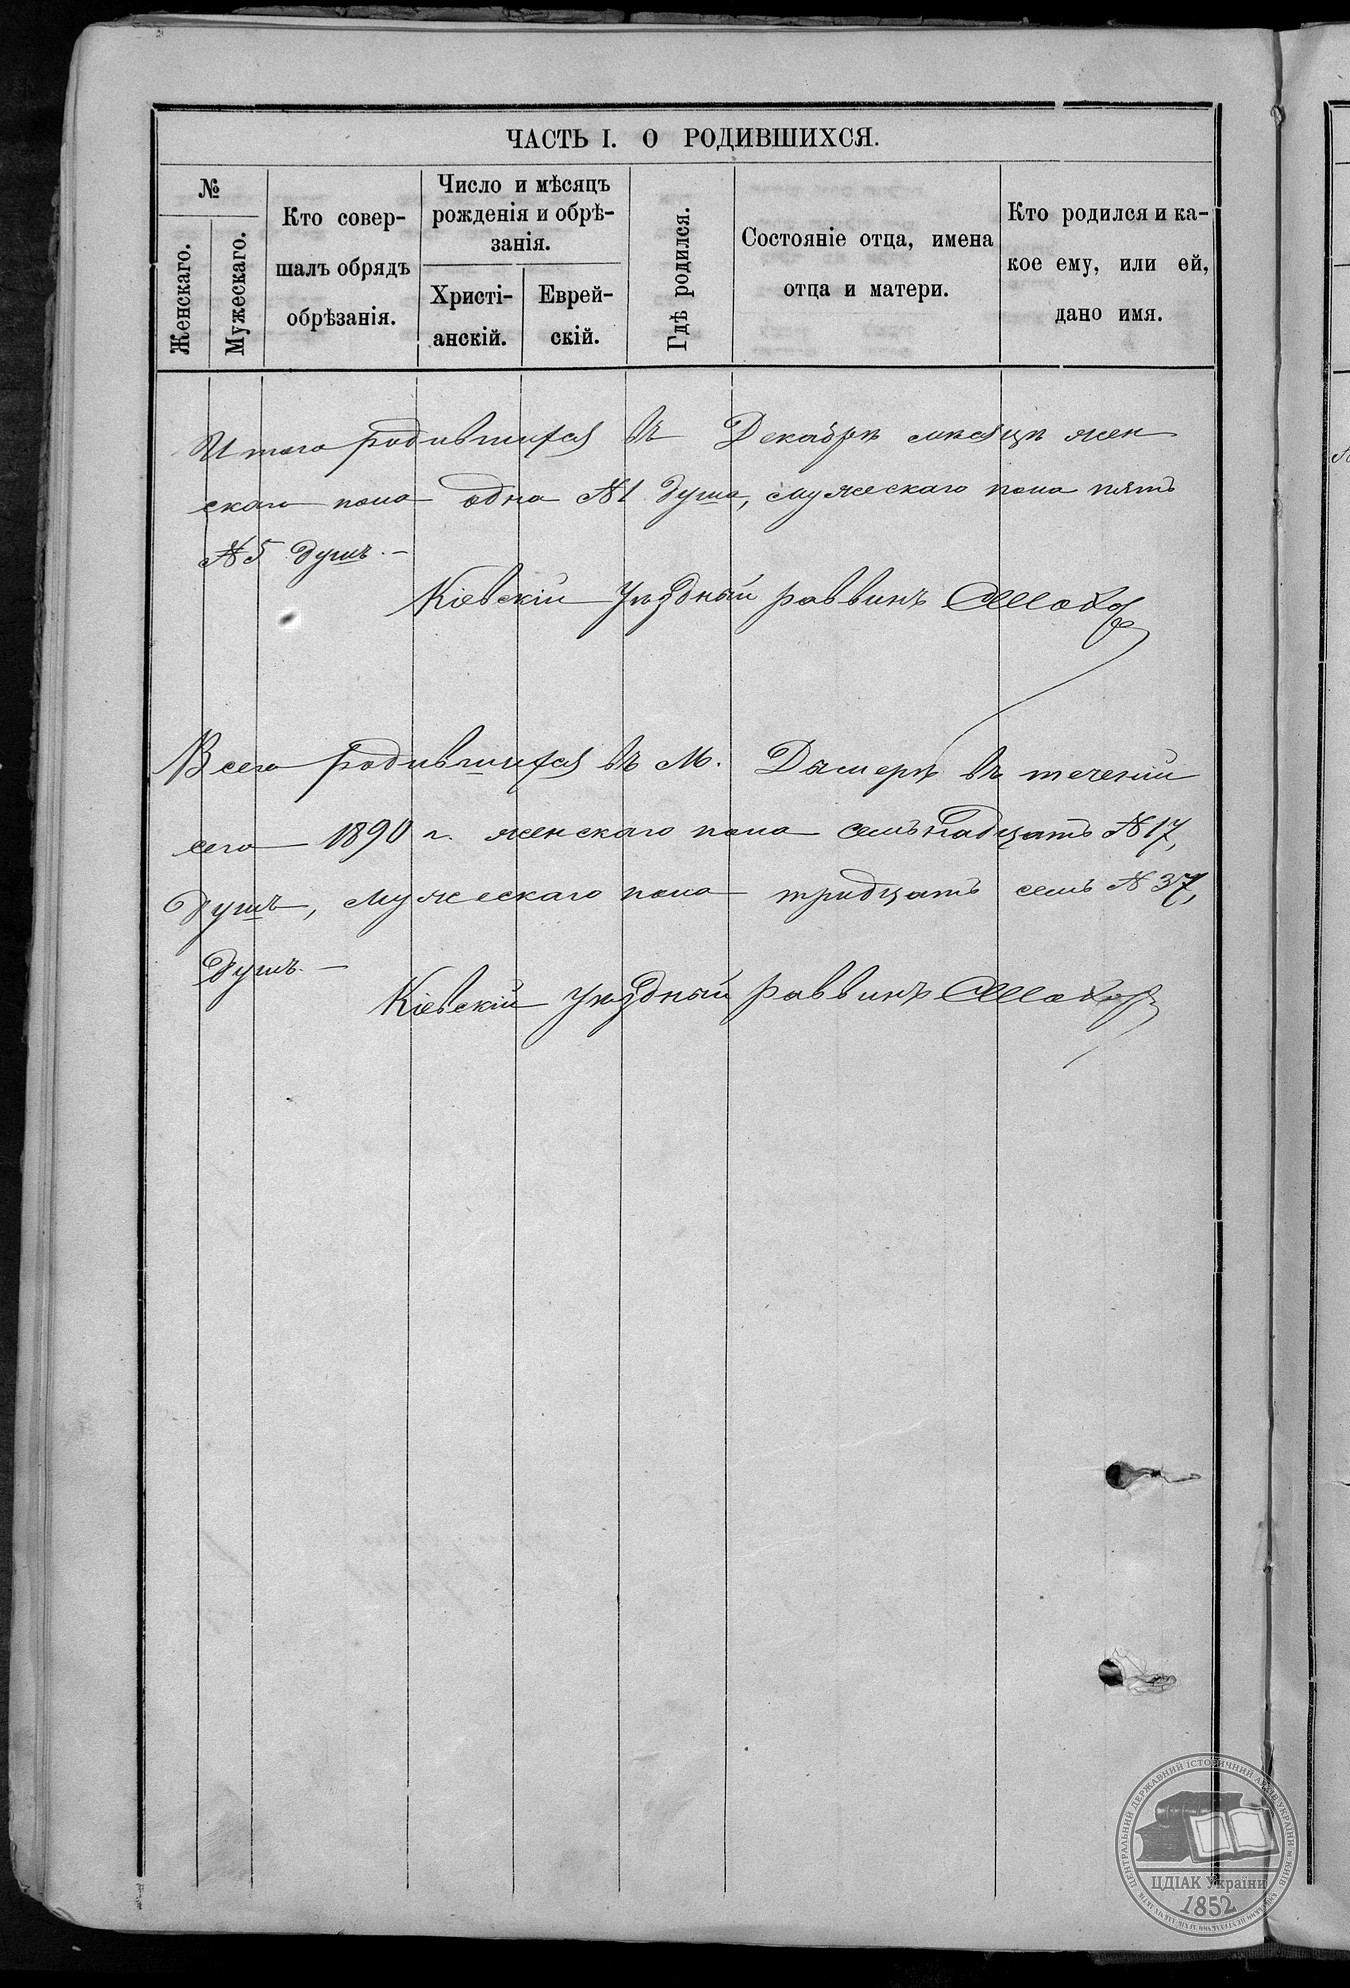 ЧАСТЬ I. О РОДИВШИХСЯ.
№
Женскаго.
Мужескаго.
Кто совер-
шалъ обрядъ
обрѣзанія.
Число и мѣсяцъ
рожденія и обрѣ-
занія.
Христі-
анскій.
Еврей-
скій.
Гдѣ родился.
Состояніе отца, имена
отца и матери.
Кто родился и ка-
кое ему, или ей,
дано имя.
Итого родившихся въ Декабрѣ мѣсяцѣ жен
скаго пола одна №1 душа, мужескаго пола пять
№5 душъ. —
Кіевскій уѣздный раввинъ
Всего родившихся въ М. Дымерѣ въ теченіи
сего 1890 г. женскаго пола семьнадцать №17,
душъ, мужескаго пола тридцать семь №37,
душъ. —
Кіевскій уѣздный раввинъ
ЦЕНТРАЛЬНИЙ ДЕРЖАВНИЙ ІСТОРИЧНИЙ АРХІВ УКРАЇНИ м. КИЇВ
ЦДІАК України
1852